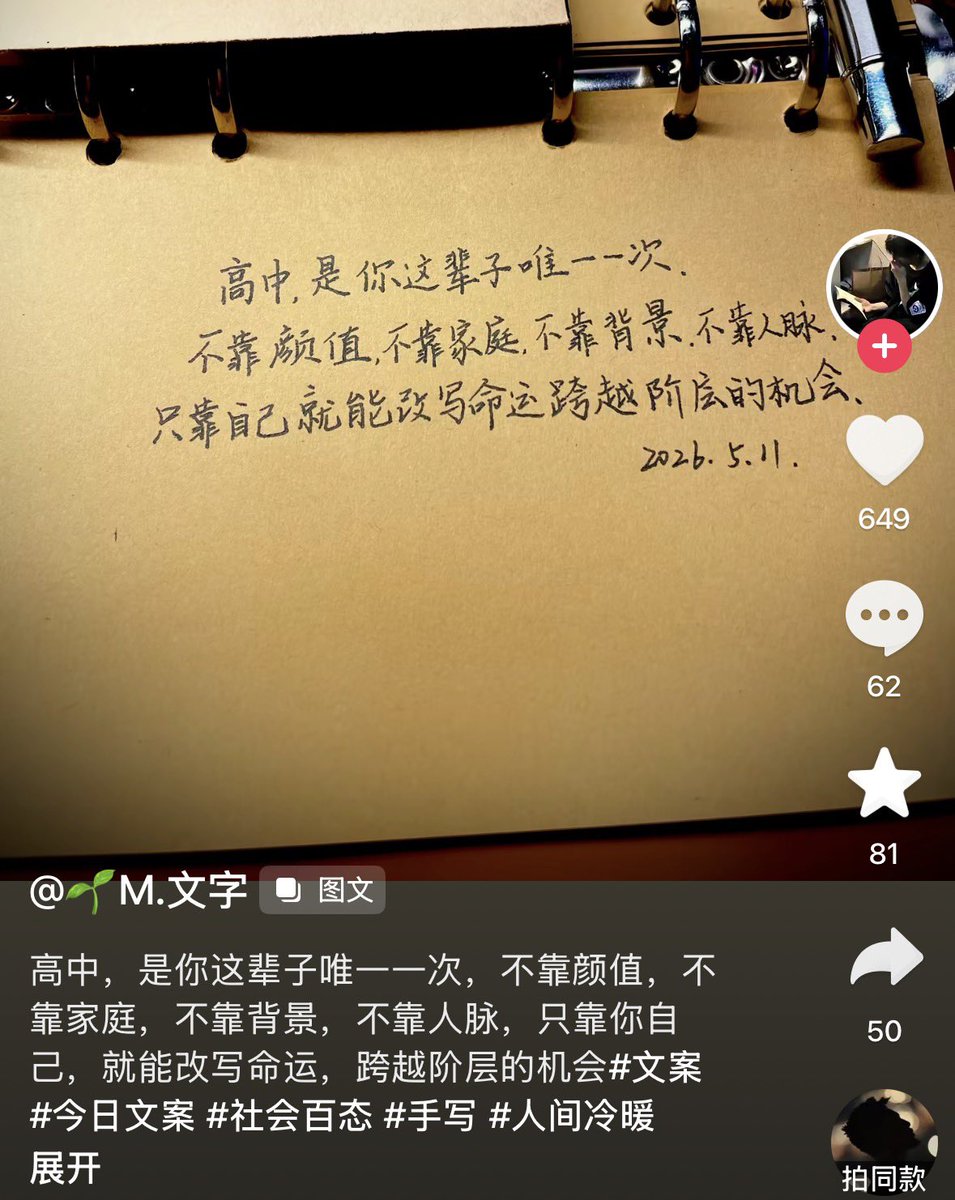 高中,是你这辈子唯一一次.
不靠颜值,不靠家庭,不靠背景.不靠人脉.
只靠自己就能改写命运跨越阶层的机会.
2026.5.11.
649
62
81
50
@🌱M.文字 图文
高中，是你这辈子唯一一次，不靠颜值，不
靠家庭，不靠背景，不靠人脉，只靠你自
己，就能改写命运，跨越阶层的机会#文案
#今日文案 #社会百态 #手写 #人间冷暖
展开
拍同款